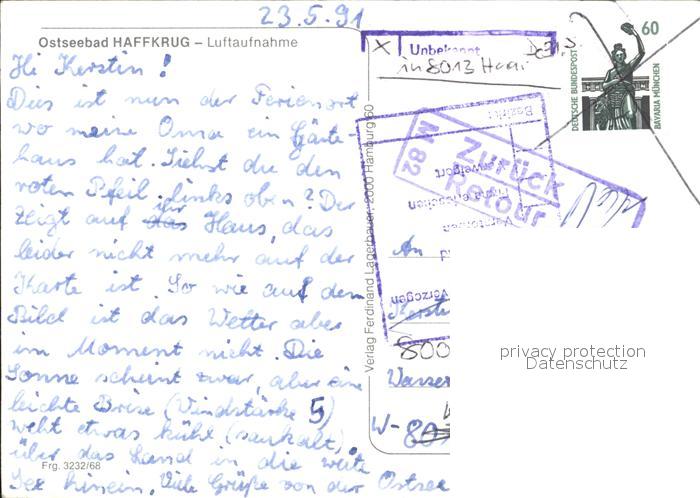 23.5.91
Ostseebad HAFFKRUG – Luftaufnahme
Hi Kersten!
Dies ist nun der Ferienort
wo meine Oma ein Gäste-
haus hat. Siehst du den
roten Pfeil links oben? Der
zeigt auf das ihr Haus, das
leider nicht mehr auf der
Karte ist. So wie auf dem
Bild ist das Wetter aber
im Moment nicht. Die
Sonne scheint zwar, aber eine
leichte Brise (Windstärke 5)
weht etwas kühl (saukalt).
über das Land in die weite
See hinein. Viele Grüße von der Ostsee
Frg. 3232/68
Verlag Ferdinand Lagerbauer, 2000 Hamburg 60
X Unbekannt
in 8013 Haar
60
DEUTSCHE BUNDESPOST
BAVARIA MÜNCHEN
Zurück
Retour
M 82
Bezirk
verweigert
Verstorben
Verzogen
An
800
Wasser
W-80
privacy protection
Datenschutz